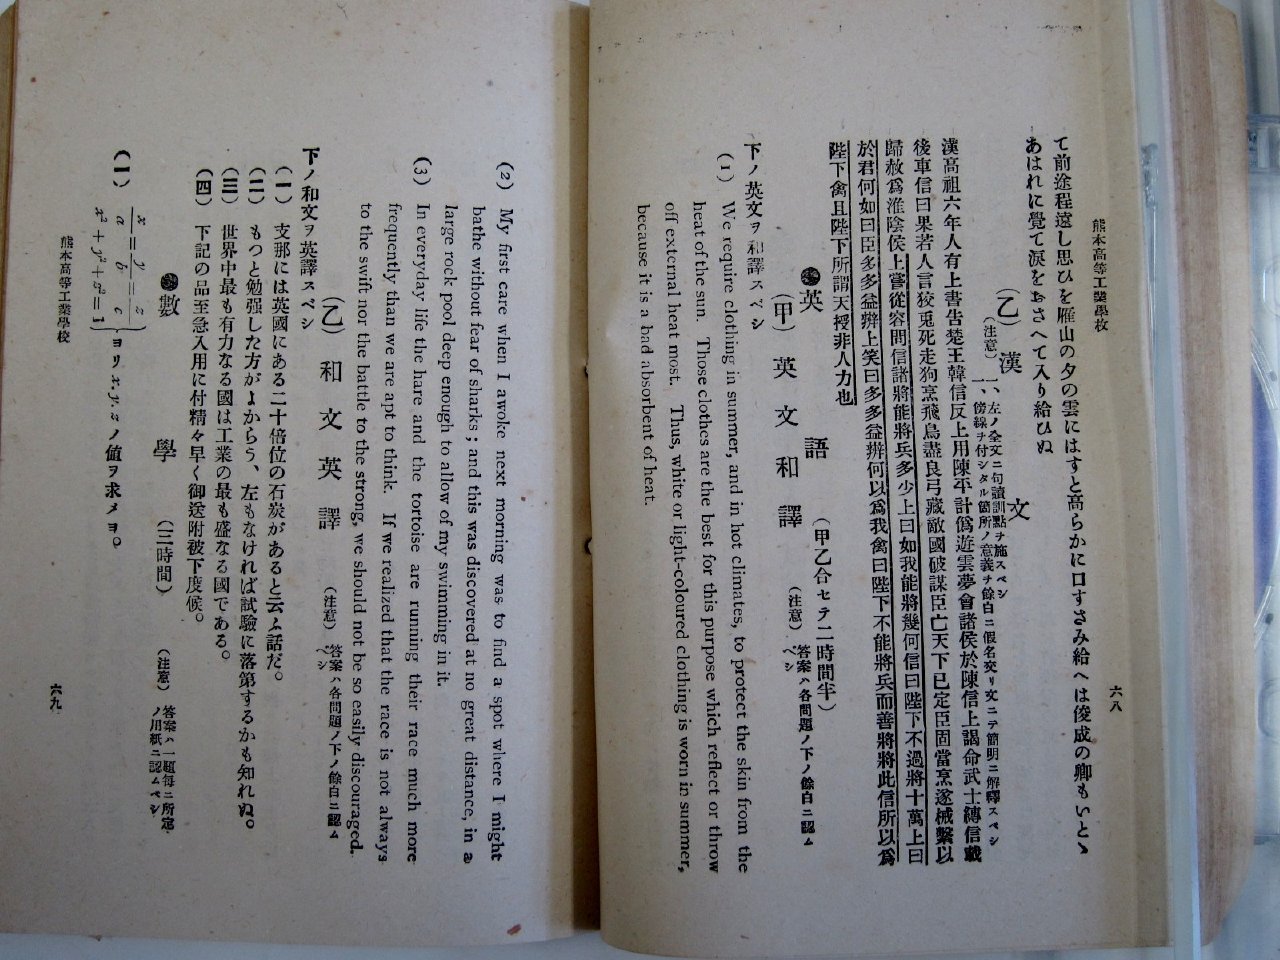 熊本高等工業學校
六八
て前途程遠し思ひを雁山の夕の雲にはすと高らかに口すさみ給へは俊成の卿もいとゝ
あはれに覺て淚をおさへて入り給ひぬ
(乙) 漢文
(注意) 一、左ノ全文ニ句讀訓點ヲ施スベシ
一、傍線ヲ付シタル箇所ノ意義ヲ餘白ニ假名交リ文ニテ簡明ニ解釋スベシ
漢高祖六年人有上書告楚王韓信反上用陳平計僞遊雲夢會諸侯於陳信上謁命武士縛信載
後車信曰果若人言狡兎死走狗烹飛鳥盡良弓藏敵國破謀臣亡天下已定臣固當烹遂械繫以
歸赦爲淮陰侯上嘗從容問信諸將能將兵多少上曰如我能將幾何信曰陛下不過將十萬上曰
於君何如曰臣多多益辨上笑曰多多益辨何以爲我禽曰陛下不能將兵而善將將此信所以爲
陛下禽且陛下所謂天授非人力也
●英語 (甲乙合セテ二時間半)
(甲) 英文和譯 (注意) 答案ハ各問題ノ下ノ餘白ニ認ムベシ
下ノ英文ヲ和譯スベシ
(1) We require clothing in summer, and in hot climates, to protect the skin from the
heat of the sun. Those clothes are the best for this purpose which reflect or throw
off external heat most. Thus, white or light-coloured clothing is worn in summer,
because it is a bad absorbent of heat.
(2) My first care when I awoke next morning was to find a spot where I might
bathe without fear of sharks; and this was discovered at no great distance, in a
large rock pool deep enough to allow of my swimming in it.
(3) In everyday life the hare and the tortoise are running their race much more
frequently than we are apt to think. If we realized that the race is not always
to the swift nor the battle to the strong, we should not be so easily discouraged.
(乙) 和文英譯 (注意) 答案ハ各問題ノ下ノ餘白ニ認ムベシ
下ノ和文ヲ英譯スベシ
(一) 支那には英國にある二十倍位の石炭があると云ふ話だ。
(二) もつと勉强した方がよからう、左もなければ試驗に落第するかも知れぬ。
(三) 世界中最も有力なる國は工業の最も盛なる國である。
(四) 下記の品至急入用に付精々早く御送附被下度候。
●數學 (三時間) (注意) 答案ハ一題每ニ所定ノ用紙ニ認ムベシ
(一) x/a = y/b = z/c
x² + y² + z² = 1 } ヨリ x, y, z ノ値ヲ求メヨ。
熊本高等工業學校
六九